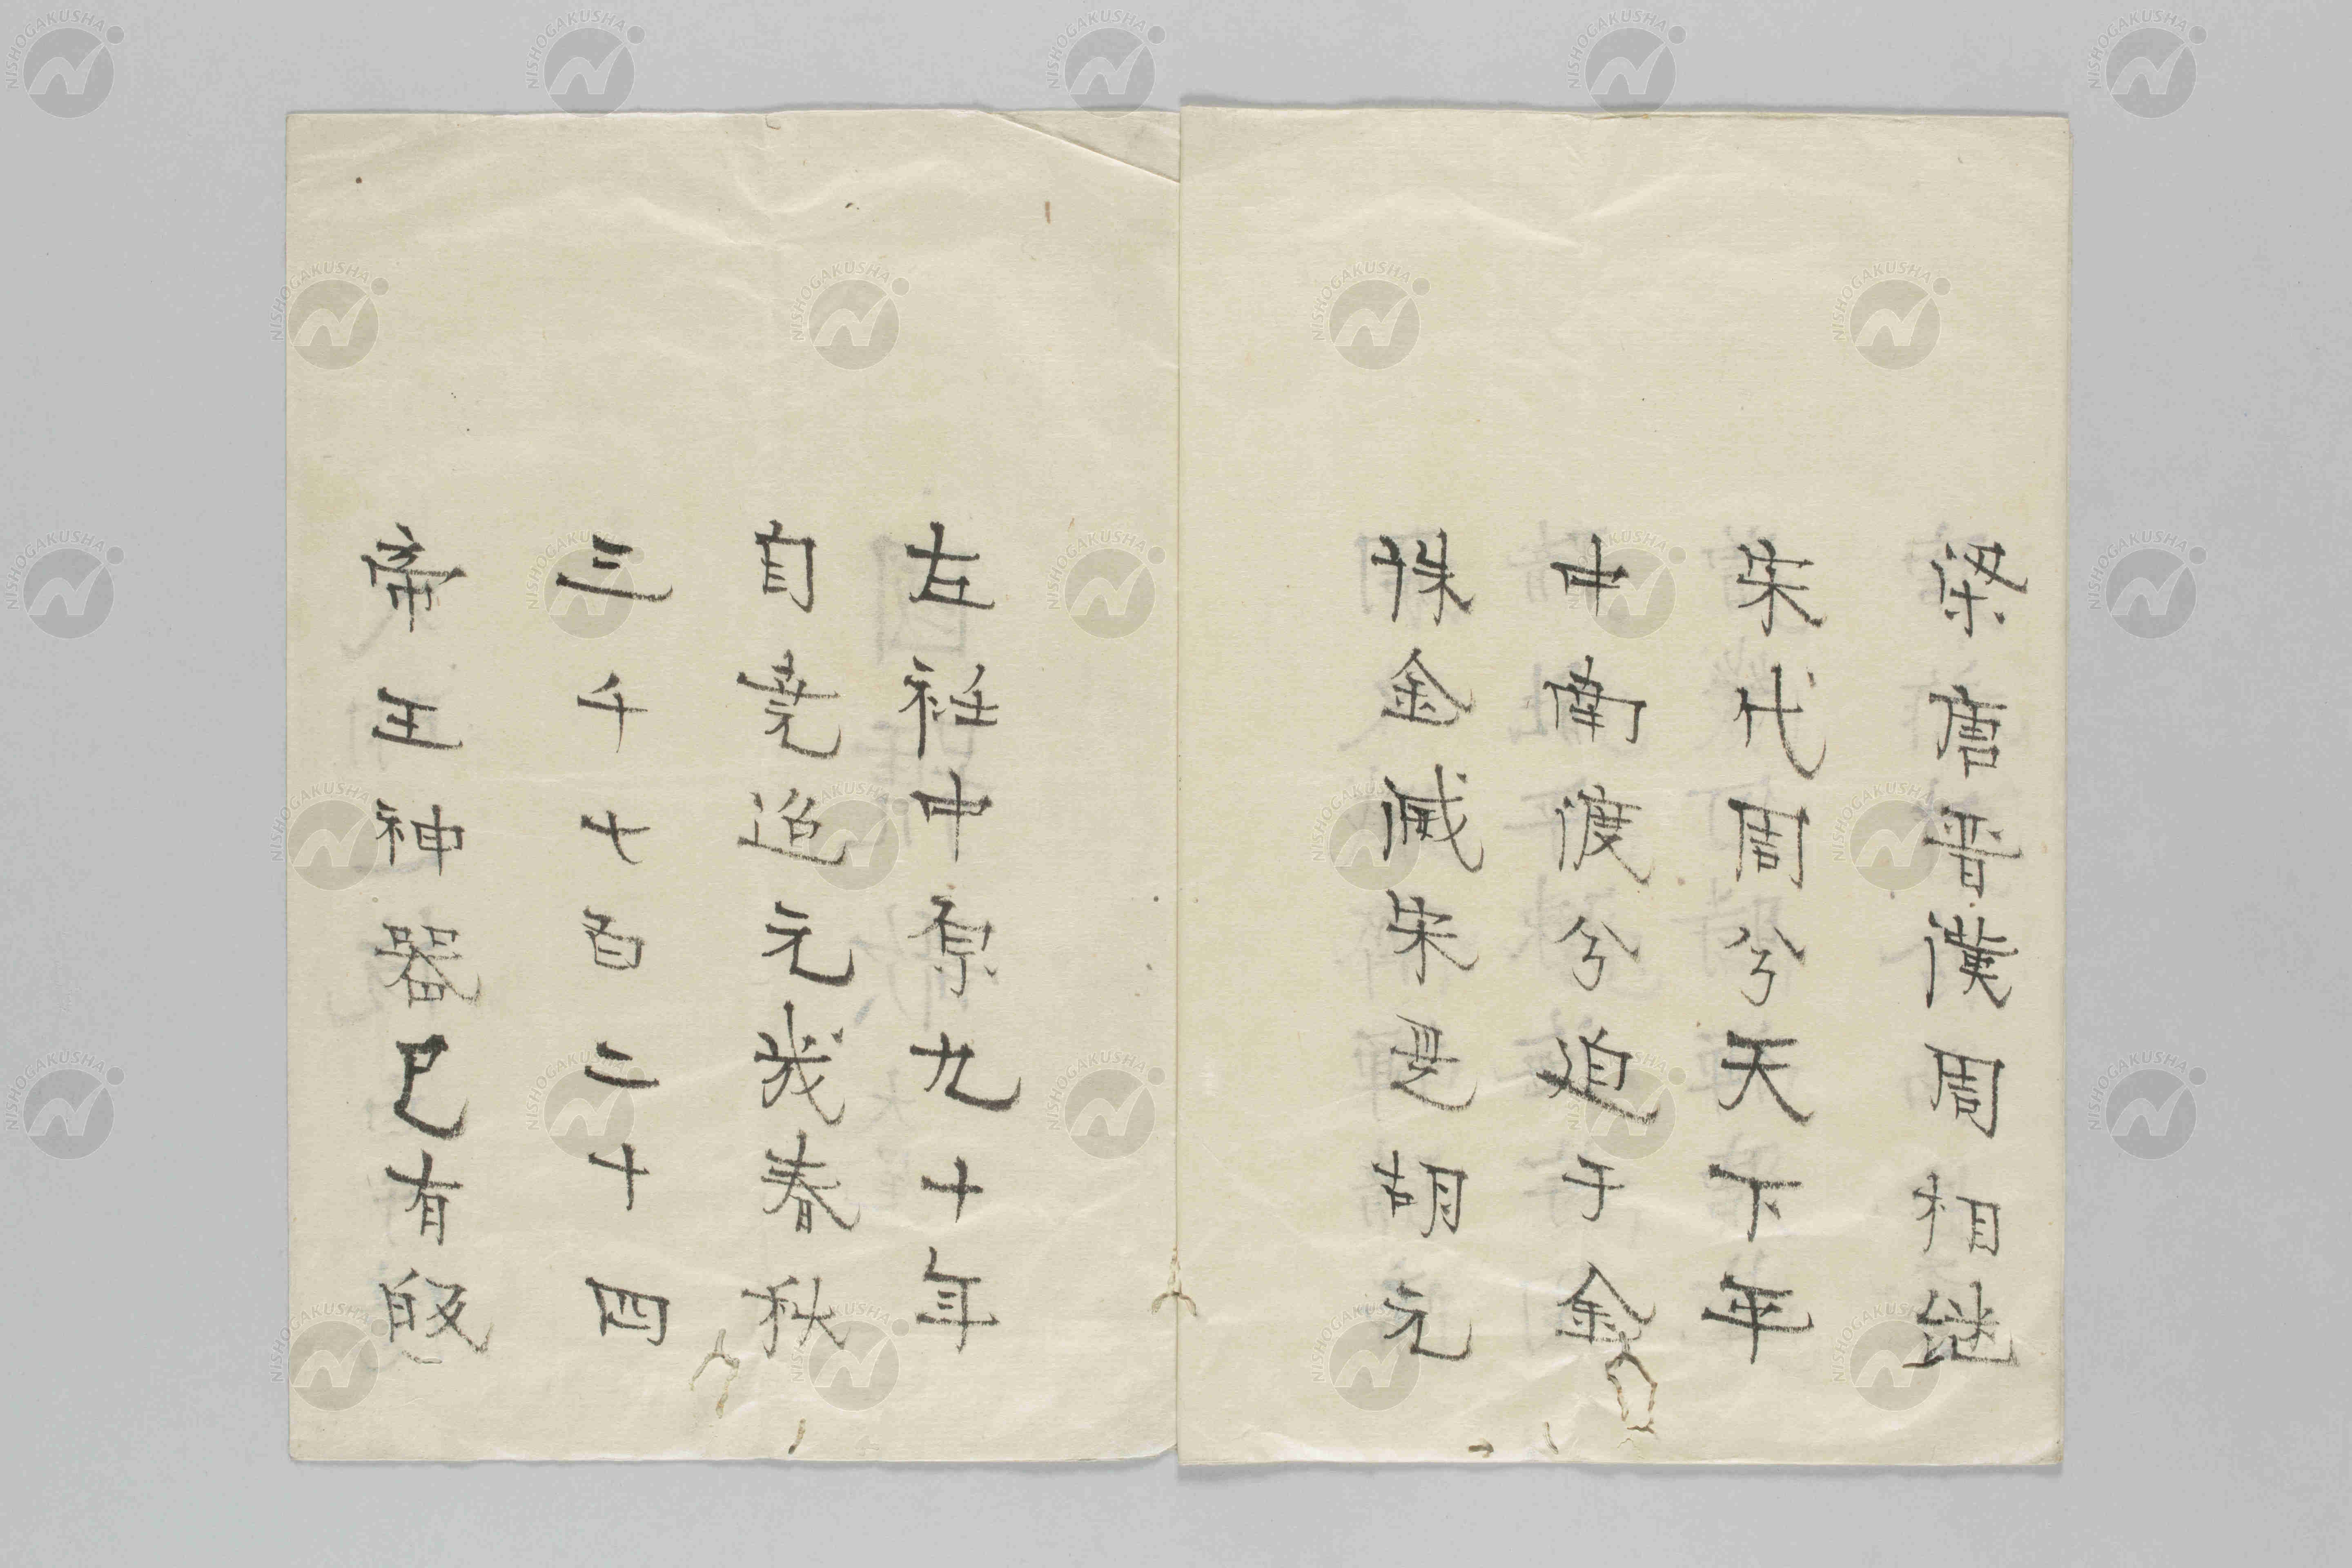 梁唐晋漢周相継
宋代周兮天下年
中南渡兮迫于金
株金滅宋是胡元
左衽中原九十年
自堯迨元幾春秋
三千七百二十四
帝王神器已有皈